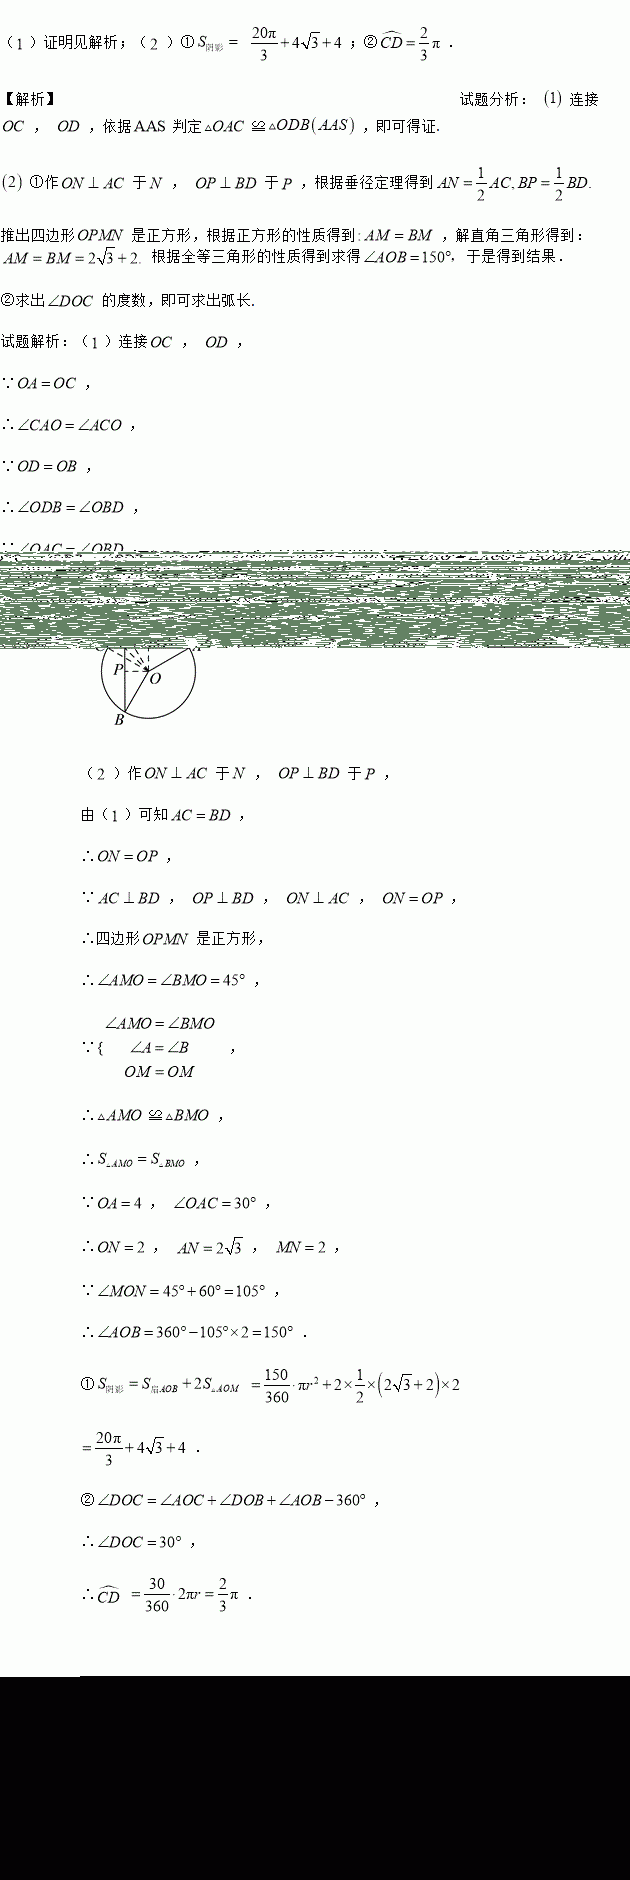 （1）证明见解析；（2）①S阴影= 20π/3+4√3+4；②⌒CD=2/3π．
【解析】 试题分析： (1) 连接
OC ， OD ，依据AAS 判定△OAC ≌△ODB(AAS) ，即可得证.
(2) ①作ON⊥AC 于N ， OP⊥BD 于P ，根据垂径定理得到AN=1/2AC, BP=1/2BD.
推出四边形OPMN 是正方形，根据正方形的性质得到:AM=BM ，解直角三角形得到：
AM=BM=2√3+2. 根据全等三角形的性质得到求得∠AOB=150°，于是得到结果．
②求出∠DOC 的度数，即可求出弧长.
试题解析：（1）连接OC ， OD ，
∵OA=OC ，
∴∠CAO=∠ACO ，
∵OD=OB ，
∴∠ODB=∠OBD ，
∵∠OAC=∠OBD
P
O
B
（2）作ON⊥AC 于N ， OP⊥BD 于P ，
由（1）可知AC=BD ，
∴ON=OP ，
∵AC⊥BD ， OP⊥BD ， ON⊥AC ， ON=OP ，
∴四边形OPMN 是正方形，
∴∠AMO=∠BMO=45° ，
∠AMO=∠BMO
∵{ ∠A=∠B ，
OM=OM
∴△AMO ≌△BMO ，
∴S△AMO=S△BMO ，
∵OA=4 ， ∠OAC=30° ，
∴ON=2 ， AN=2√3 ， MN=2 ，
∵∠MON=45°+60°=105° ，
∴∠AOB=360°−105°×2=150° ．
①S阴影=S扇AOB+2S△AOM =150/360·πr²+2×1/2×(2√3+2)×2
=20π/3+4√3+4 ．
②∠DOC=∠AOC+∠DOB+∠AOB−360° ，
∴∠DOC=30° ，
∴⌒CD =30/360·2πr=2/3π ．